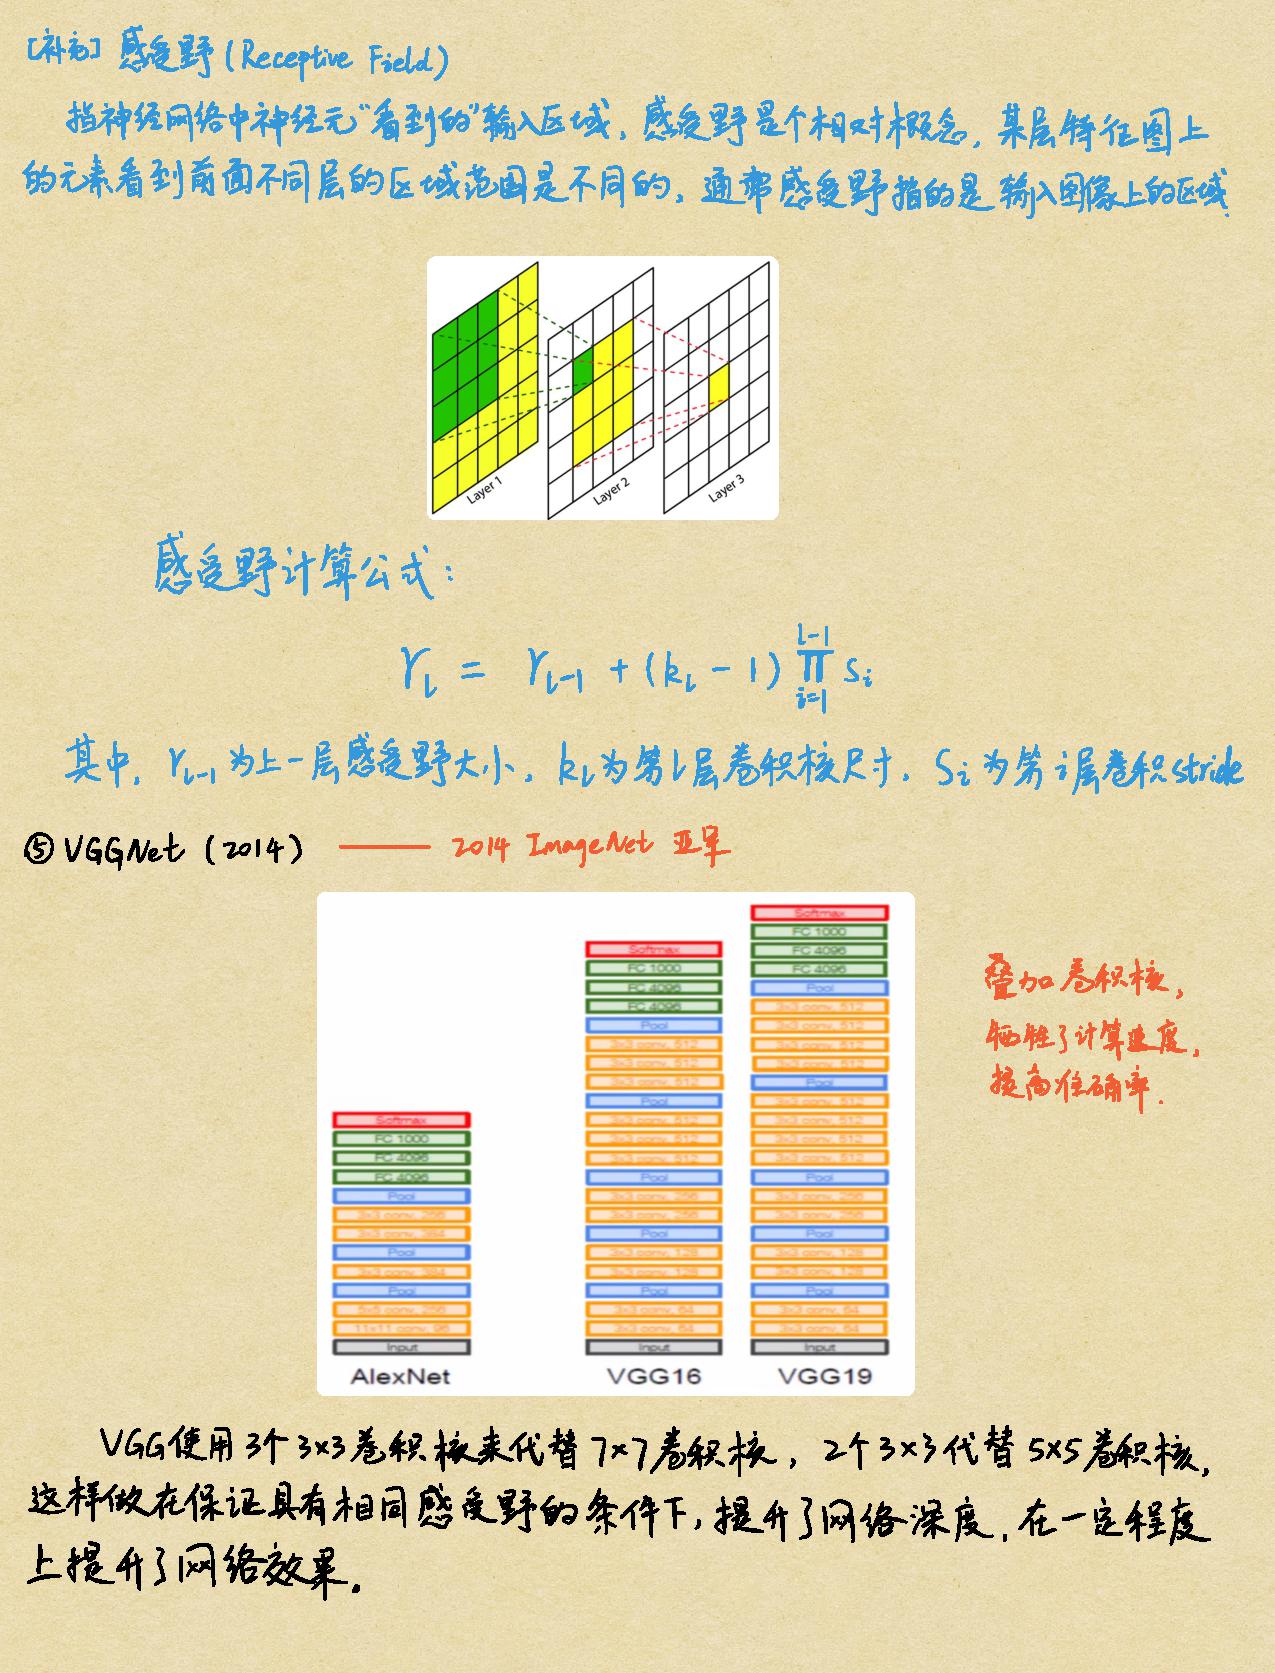 [补充] 感受野 (Receptive Field)
指神经网络中神经元“看到的”输入区域，感受野是个相对概念，某层特征图上
的元素看到前面不同层的区域范围是不同的，通常感受野指的是输入图像上的区域.
Layer 1
Layer 2
Layer 3
感受野计算公式：
r_l = r_{l-1} + (k_l - 1) ∏_{i=1}^{l-1} s_i
其中，r_{l-1} 为上一层感受野大小，k_l 为第 l 层卷积核尺寸，S_i 为第 i 层卷积 stride
⑤ VGGNet (2014) —— 2014 ImageNet 亚军
叠加卷积核，
牺牲了计算速度，
提高准确率.
Softmax
FC 1000
FC 4096
FC 4096
Pool
3x3 conv, 256
3x3 conv, 384
Pool
3x3 conv, 384
Pool
5x5 conv, 256
11x11 conv, 96
Input
AlexNet
Softmax
FC 1000
FC 4096
FC 4096
Pool
3x3 conv, 512
3x3 conv, 512
3x3 conv, 512
Pool
3x3 conv, 512
3x3 conv, 512
3x3 conv, 512
Pool
3x3 conv, 256
3x3 conv, 256
Pool
3x3 conv, 128
3x3 conv, 128
Pool
3x3 conv, 64
3x3 conv, 64
Input
VGG16
Softmax
FC 1000
FC 4096
FC 4096
Pool
3x3 conv, 512
3x3 conv, 512
3x3 conv, 512
3x3 conv, 512
Pool
3x3 conv, 512
3x3 conv, 512
3x3 conv, 512
3x3 conv, 512
Pool
3x3 conv, 256
3x3 conv, 256
Pool
3x3 conv, 128
3x3 conv, 128
Pool
3x3 conv, 64
3x3 conv, 64
Input
VGG19
VGG使用3个3×3卷积核来代替7×7卷积核，2个3×3代替5×5卷积核，
这样做在保证具有相同感受野的条件下，提升了网络深度，在一定程度
上提升了网络效果。